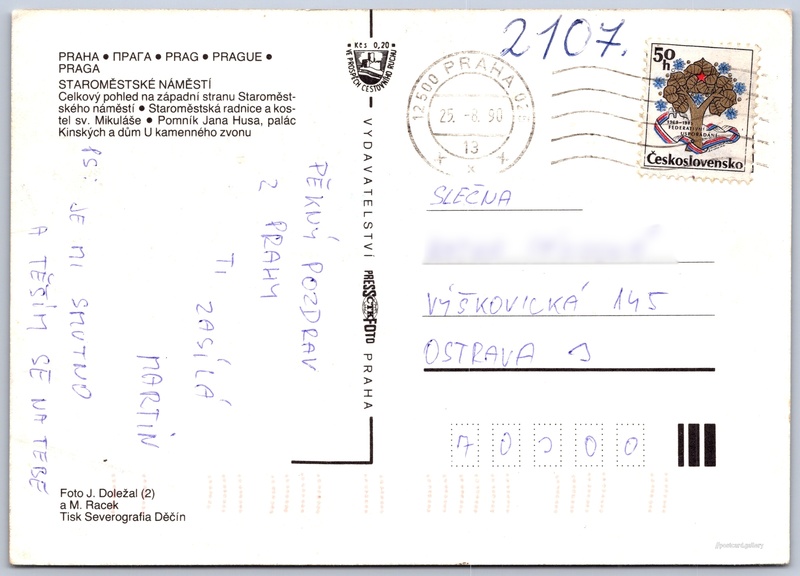 PRAHA ● ПРАГА ● PRAG ● PRAGUE ●
PRAGA
STAROMĚSTSKÉ NÁMĚSTÍ
Celkový pohled na západní stranu Staroměst-
ského náměstí ● Staroměstská radnice a kos-
tel sv. Mikuláše ● Pomník Jana Husa, palác
Kinských a dům U kamenného zvonu
PĚKNÝ POZDRAV
Z PRAHY
TI ZASÍLÁ
MARTIN
PS: JE MI SMUTNO
A TĚŠÍM SE NA TEBE
Foto J. Doležal (2)
a M. Racek
Tisk Severografia Děčín
Kčs 0,20
VE PROSPĚCH CESTOVNÍHO RUCHU
VYDAVATELSTVÍ PRESSFOTO PRAHA
ČTK
2107.
12500 PRAHA 025
25. -8. 90
13
50
h
1968-1988
FEDERATIVNÍ
USPOŘÁDÁNÍ
Československo
SLEČNA
VÝŠKOVICKÁ 145
OSTRAVA J
70000
//postcard.gallery